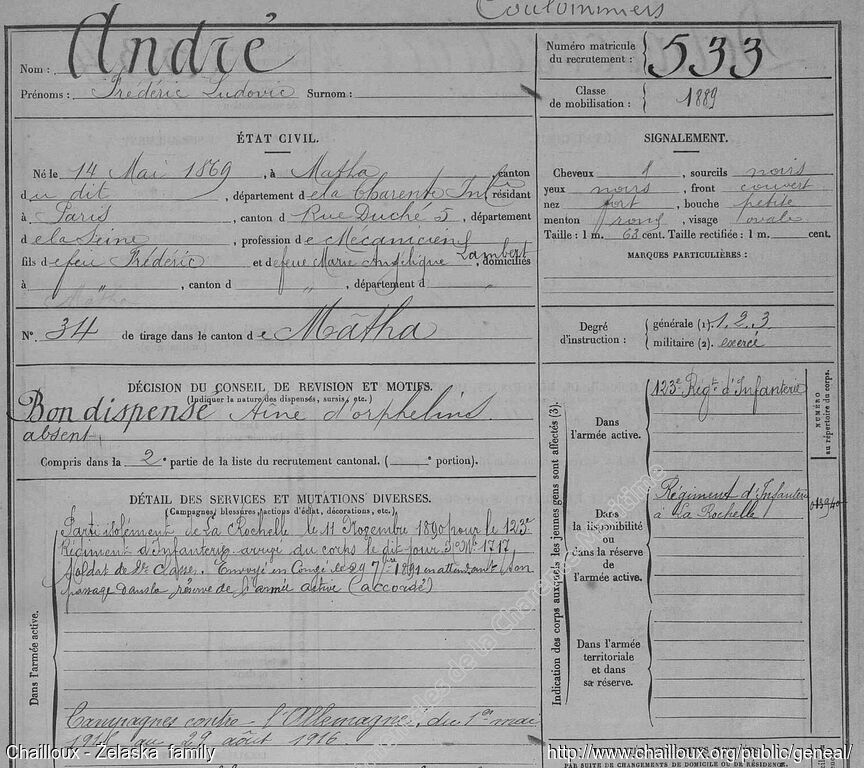 Coulommiers
Nom : André
Prénoms : Frédéric Ludovic Surnom :
Numéro matricule du recrutement : 533
Classe de mobilisation : 1889
ÉTAT CIVIL.
Né le 14 Mai 1869, à Matha canton
du dit, département de la Charente Infre résidant
à Paris, canton d Rue Duché 5, département
de la Seine, profession de Mécanicien
fils de feu Frédéric et de feue Marie Angélique Lambert, domiciliés
à " Matha, canton d ", département d "
SIGNALEMENT.
Cheveux, sourcils noirs
yeux noirs, front couvert
nez fort, bouche petite
menton rond, visage ovale
Taille : 1 m. 63 cent. Taille rectifiée : 1 m. cent.
MARQUES PARTICULIÈRES :
N° 34 de tirage dans le canton de Mâtha
Degré d'instruction : générale (1). 1, 2, 3
militaire (2). exercé
DÉCISION DU CONSEIL DE REVISION ET MOTIFS.
(Indiquer la nature des dispensés, sursis, etc.)
Bon dispensé Aîné d'orphelins.
absent,
Compris dans la 2e partie de la liste du recrutement cantonal. ( e portion).
DÉTAIL DES SERVICES ET MUTATIONS DIVERSES.
(Campagnes, blessures, actions d'éclat, décorations, etc.)
Dans l'armée active.
Parti isolément de La Rochelle le 11 Novembre 1890 pour le 123e
Régiment d'Infanterie arrivé au corps le dit jour, No Mle 1717,
Soldat de 2e Classe. Envoyé en Congé le 29 7bre 1891 en attendant son
passage dans la réserve de l'armée active (accordé)
Campagnes contre l'Allemagne, du 1er mai
au 29 août 1916.
Indication des corps auxquels les jeunes gens sont affectés (3).
NUMÉRO au répertoire du corps.
Dans l'armée active.
123e Régt d'Infanterie
Dans la disponibilité ou dans la réserve de l'armée active.
Régiment d'Infanterie
à La Rochelle
Dans l'armée territoriale et dans sa réserve.
PAR SUITE DE CHANGEMENTS DE DOMICILE OU DE RÉSIDENCE.
Chailloux - Żelaska family
http://www.chailloux.org/public/geneal/